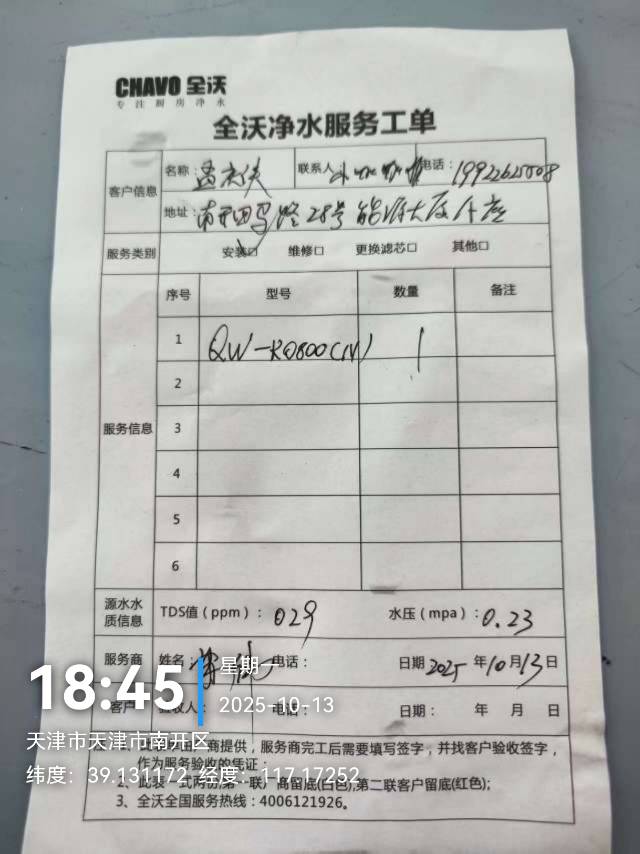 CHAVO 全沃
专注厨房净水
全沃净水服务工单
客户信息
名称:
联系人
电话: 19922625008
地址: 南开区 路28号能源大厦A座
服务类别 安装☑ 维修口 更换滤芯口 其他口
服务信息
序号 型号 数量 备注
1 QW-RO800(1V) 1
2
3
4
5
6
源水水质信息
TDS值(ppm): 029 水压(mpa): 0.23
服务商 姓名: 电话: 日期 2025年10月13日
客户 验收人: 电话: 日期: 年 月 日
商提供,服务商完工后需要填写签字,并找客户验收签字,
作为服务验收的凭证;
2、此表一式两份,第一联厂商留底(白色),第二联客户留底(红色);
3、全沃全国服务热线:4006121926。
18:45
星期一
2025-10-13
天津市天津市南开区
纬度:39.131172 经度:117.17252